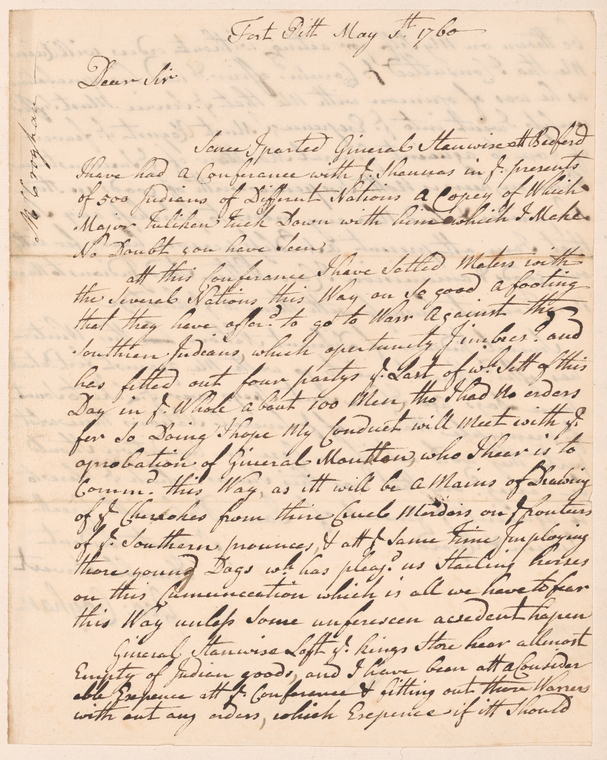 Fort Pitt May 5th 1760
Dear Sir
Mr Croghan
Sence I parted General Stanwise att Bedford
I have had a Conference with ye. Shannas in ye. presents
of 500 Indians of Diffrent Nations a Copey of Which
Major Tuliken Tuck Down with him which I Make
No Doubt you have Seen;
att this Conference I have Setled Maters with
the Several Nations this Way on So good a footing
that they have offerd. to go to Warr against the
Southern Indians, which opertunity I imbesd. and
has fitted out four partys ye. Last of wh. Sett of this
Day in ye. Whole about 100 Men, tho I had No orders
fer So Doing I hope My Conduct will Meet with ye.
aprobation of General Mountton who I hear is to
Commd. this Way, as itt will be a Mains of Drawing
of ye Cherokes from thire Cruele Murdors on ye frontiers
of ye. Southern provinces & att ye Same time Imploying
those young Dogs wh. has pleagd. us Stealing horses
on this Comunecation which is all we have to fear
this Way unless Some unfereseen acsedent hapen
General Stanwise Left ye. kings Store hear allmost
Empty of Indien goods, and I have been att a Consider
able Expence att ye. Conference & fitting out those Warrers
with out any orders, which Expence if itt Should